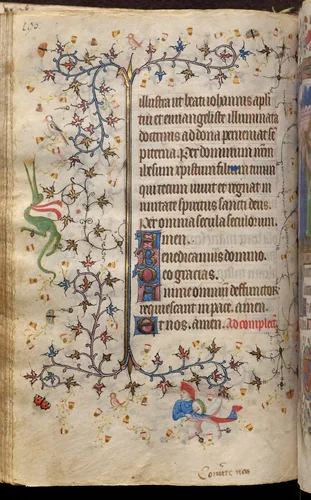 illustra ut beati iohannis apli
tui et euuangeliste illuminata
doctrinis ad dona perueniat sē
piterna. Per dominum nr̄m
ihesum xpistum filium tuum
qui tecum uiuit et regnat in
unitate spiritus sancti deus.
Per omnia secula seculorum.
Amen.
Benedicamus domino.
Deo gracias.
Anime omnium deffunctor
requiescant in pace. amen.
Et nos. amen. Ad complet
Conuerte nos